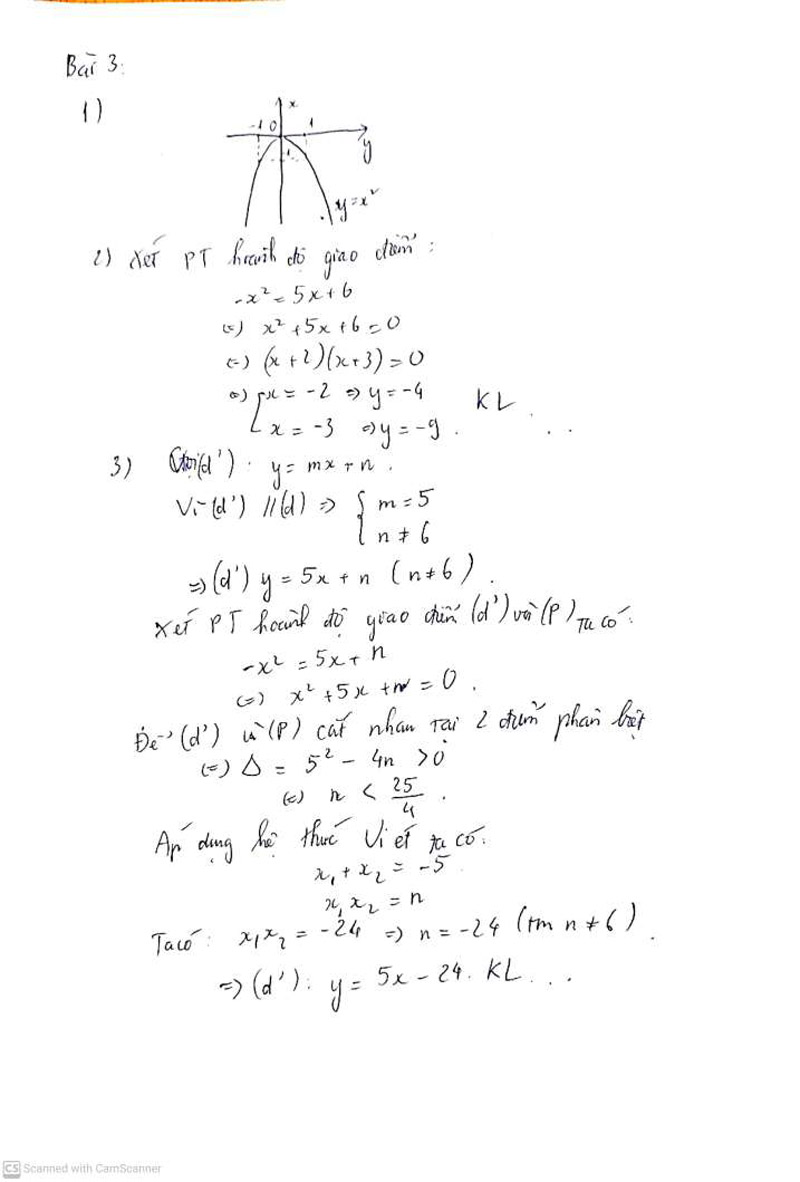 Bài 3:
1)
x
-1 0 1
y
-1
y=x²
2) Xét PT hoành độ giao điểm:
-x² = 5x+6
(=) x² +5x+6=0
(=) (x+2)(x+3)=0
(=) [x = -2 => y=-4
x = -3 => y=-9. KL...
3) Gọi (d'): y= mx + n.
Vì (d') // (d) => { m=5
n ≠ 6
=> (d') y = 5x + n (n≠6).
Xét PT hoành độ giao điểm (d') và (P) Ta có:
-x² = 5x+ n
(=) x² +5x +n = 0.
Để (d') và (P) cắt nhau tại 2 điểm phân biệt
(=) Δ = 5² - 4n >0
(=) n < 25/4.
Áp dụng hệ thức Vi ét ta có:
x₁ + x₂ = -5
x₁ x₂ = n
Ta có: x₁x₂ = -24 => n = -24 (tm n≠6).
=> (d'): y = 5x - 24. KL...
CS Scanned with CamScanner